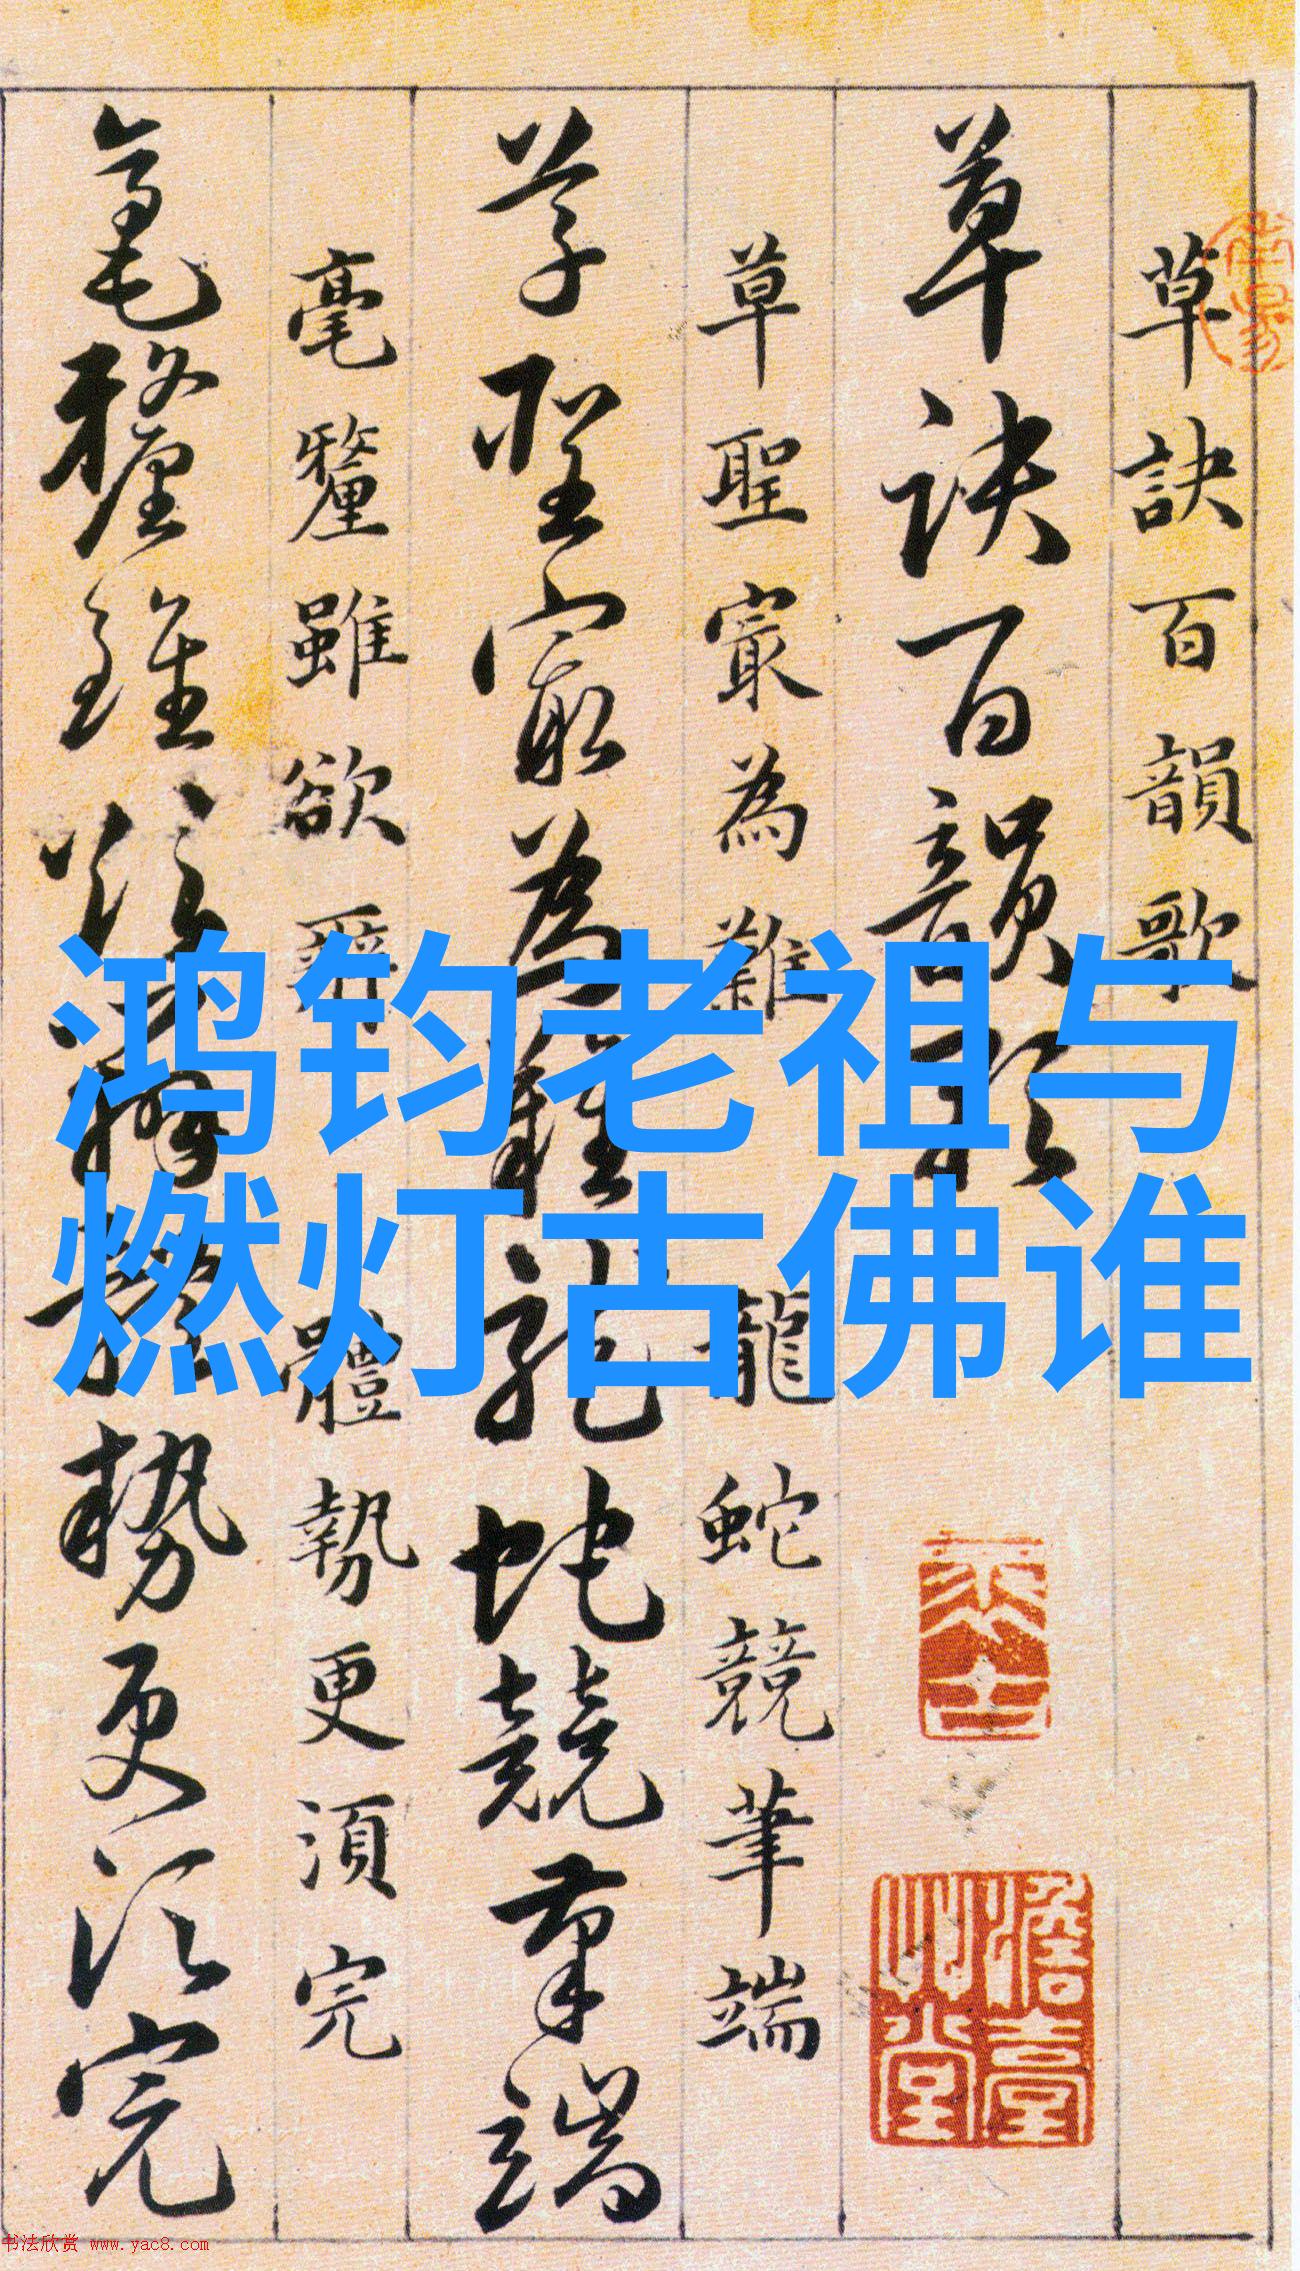 草訣百韻歌
草訣百韻歌
草聖寂為難龍蛇競筆端
草聖寂為難龍蛇競筆端
毫釐雖欲辭體勢更須完
毫釐雖欲辨體勢更須完
鸿钧老祖与
燃灯古佛谁
书法欣赏 www.yac8.com